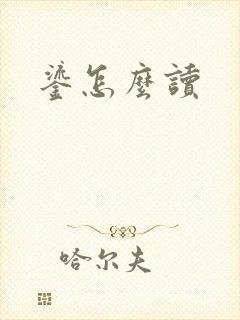 鎏怎麼讀
哈尔夫